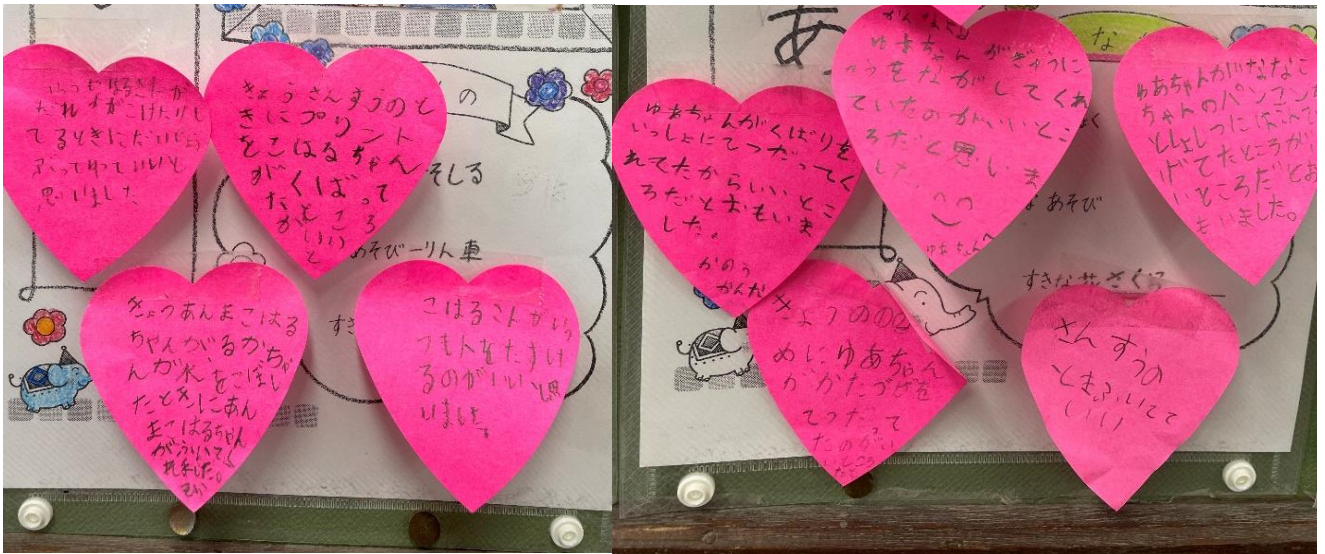 いつも
だれかがこけたりし
てるときにだいじょう
ぶってゆていいと
思いました
きょうさんすうのと
きにプリント
をこはるちゃん
がくばって
たところ
がいいと
の
そしる
あそびーりん車
すき
きょうあんまこはる
ちゃんがるかちゃ
んが水をこぼし
たときにあん
まこはるちゃん
がふいてく
れました。
こはるさんがい
つも人をたすけ
るのがいいと思
いました。
あ
な
ゆあちゃんがくばりを
いっしょにてつだってく
れてたからいいとこ
ろだとおもいま
した。
かのう
かんな
ゆあちゃんがぎゅうに
ゅうをながしてくれ
ていたのがいいとこ
ろだと思いま
した。
ゆあちゃんへ
ゆあちゃんがななこ
ちゃんの
としょしつにはこんで
てたところがい
いところだとお
もいました。
く
あそび
すきな花さくら
きょうの
めにゆあちゃん
がかたづけを
てつだって
たのがいい
ところ
さんすうの
ときふいてて
いい